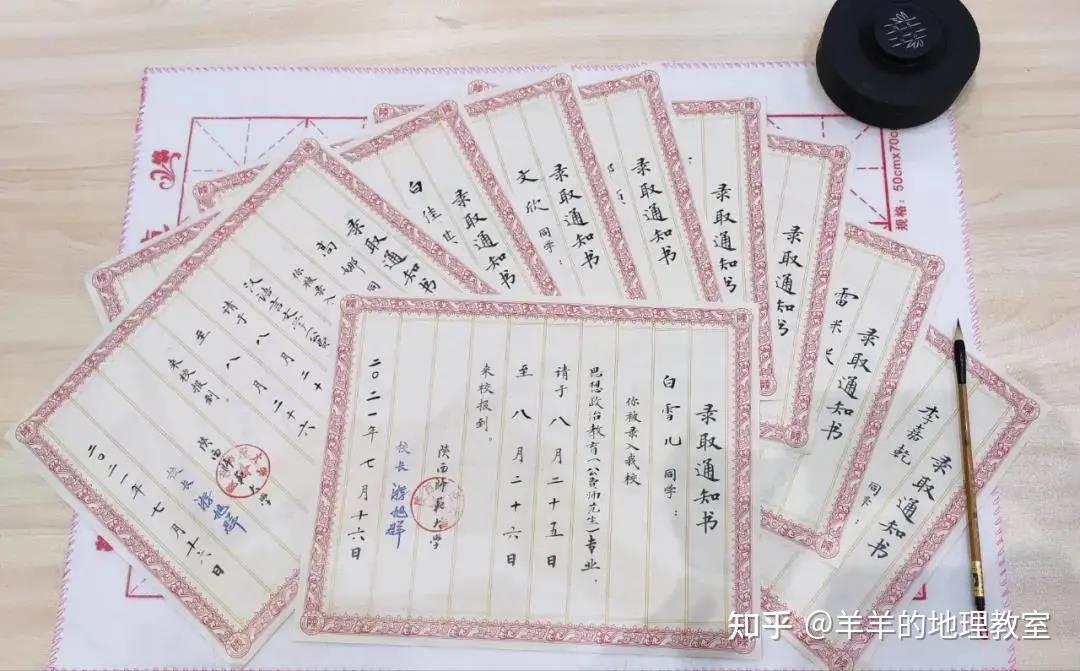 录取通知书
白雪儿 同学：
你被录入我校
思想政治教育（公费师范生）专业，
请于八月二十五日
至八月二十六日
来校报到。
陕西师范大学
校长 游旭群
二〇二一年七月十六日
录取通知书
高娜 同
你被录入
汉语言文学（公费
请于八月二十
至八月二十六
来校报到。
陕西师范大学
校长 游旭群
二〇二一年七月十六日
录取通知书
白佳
录取通知书
文欣 同学：
录取通知书
录取通知书
录取通知书
录取通知书
雷米
录取通知书
李嘉乾 同学：
规格：50cmx70c
知乎 @羊羊的地理教室